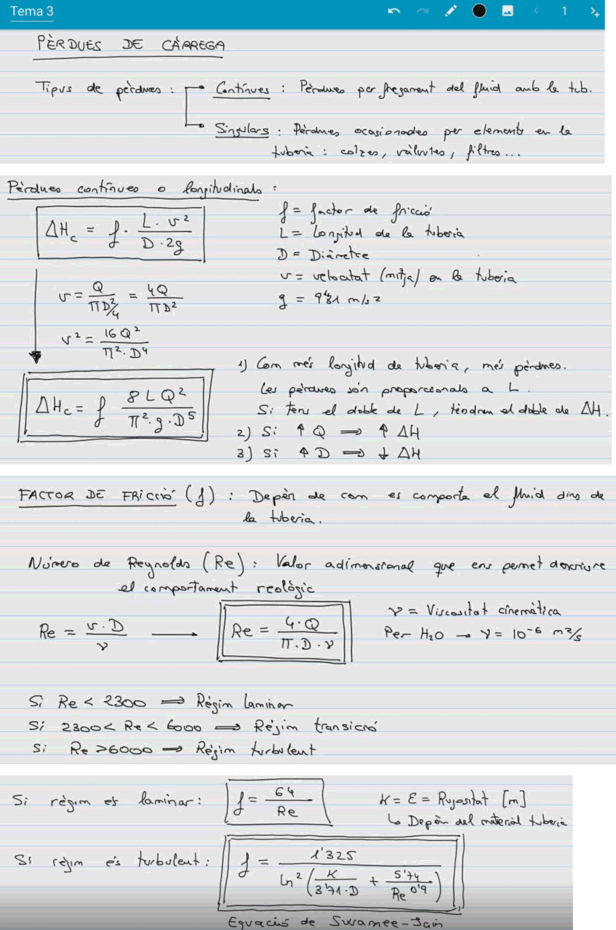 Tema 3
1
PÈRDUES DE CÀRREGA
Tipus de pèrdues : Contínues : Pèrdues per fregament del fluid amb la tub.
Singulars : Pèrdues ocasionades per elements en la
tuberia : colzes, vàlvules, filtres...
Pèrdues contínues o longitudinals :
ΔHc = f · L · v² / D · 2g
f = factor de fricció
L = Longitud de la tuberia
D = Diàmetre
v = velocitat (mitja) en la tuberia
g = 9'81 m/s²
v = Q / (πD²/4) = 4Q / πD²
v² = 16Q² / π² · D⁴
ΔHc = f 8 L Q² / π² · g · D⁵
1) Com més longitud de tuberia, més pèrdues.
Les pèrdues són proporcionals a L.
Si tens el doble de L, tindràs el doble de ΔH.
2) Si ↑ Q ⟹ ↑ ΔH
3) Si ↑ D ⟹ ↓ ΔH
FACTOR DE FRICCIÓ (f) : Depèn de com es comporta el fluid dins de
la tuberia.
Número de Reynolds (Re) : Valor adimensional que ens permet descriure
el comportament reològic
Re = v · D / ν → Re = 4 · Q / π · D · ν
ν = Viscositat cinemàtica
Per H₂O → ν = 10⁻⁶ m²/s
Si Re < 2300 ⟹ Règim laminar
Si 2300 < Re < 6000 ⟹ Règim transició
Si Re > 6000 ⟹ Règim turbulent
Si règim és laminar : f = 64 / Re
K = ε = Rugositat [m]
↳ Depèn del material tuberia
Si règim és turbulent : f = 1'325 / ln² (K / 3'71 · D + 5'74 / Re^0'9)
Equació de Swamee-Jain